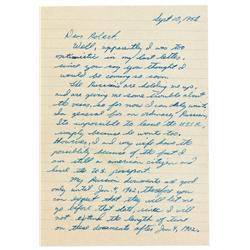 Sept 10, 1961
Dear Robert,
Well, apparently I was too
optimistic in my last letter,
since you say you thought I
would be coming so soon.
The Russians are holding us up,
and are giving me some trouble about
the visas, so for now I can only wait.
In general for an ordinary Russian,
Its impossible to leave the USSR,
simply because he wants too.
However, I and my wife have the
possibility because of the fact I
am still a american citizen and
have the U.S. passport.
My Russian documents is good
only until Jan 4, 1962, therefore you
can expect that they will let me
go before that date, since I will
not extend the length of time
on these documents after Jan 4, 1962.